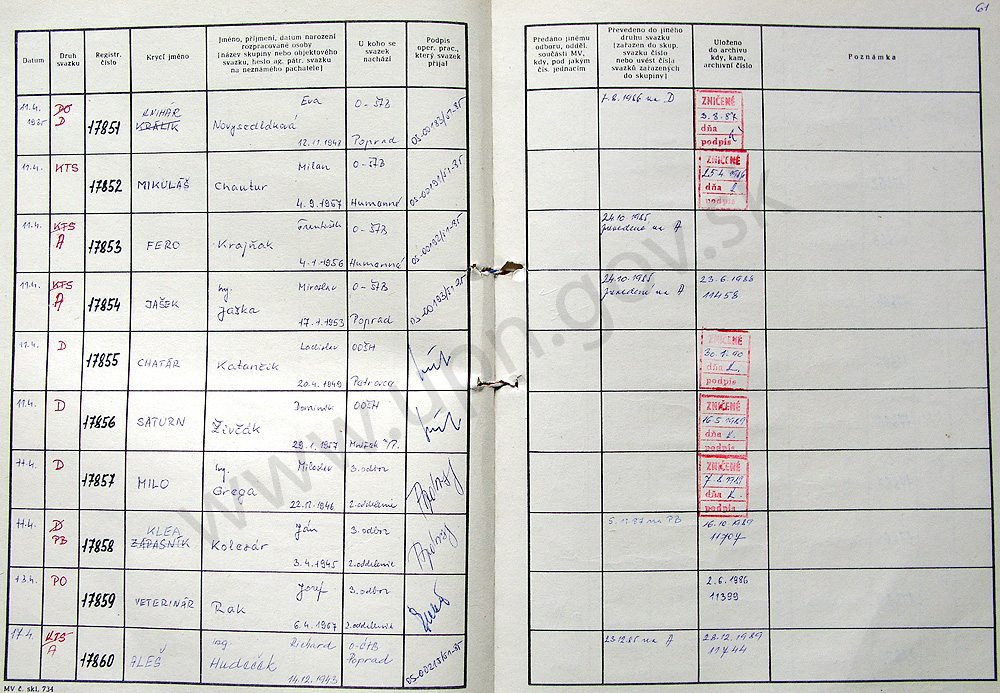 61
Datum
Druh svazku
Registr. číslo
Krycí jméno
Jméno, příjmení, datum narození
rozpracované osoby
[název skupiny nebo objektového
svazku, heslo ag. pátr. svazku
na neznámého pachatele]
U koho se
svazek
nachází
Podpis
oper. prac.,
který svazek
přijal
Předáno jinému
odboru, odděl.
součásti MV,
kdy, pod jakým
čís. jednacím
Převedeno do jiného
druhu svazku
[zařazen do skup.
svazku nebo
uvést čísla
svazků zařazených
do skupiny]
Uloženo
do archivu
kdy, kam,
archivní číslo
Poznámka
11.4. 1985 DO D 17851 KNIHÁR KRÁLIK Eva O-ŠTB
Novysedláková
12.11.1943 Poprad
7.8.1986 na D
ZNIČENÉ
3.8.87
dňa
podpis
11.4. KTS 17852 MIKULÁŠ Milan O-ŠTB
Chautur
4.9.1957 Humenné
ZNIČENÉ
25.4.1986
dňa
podpis
11.4. KTS A 17853 FERO František O-ŠTB
Krajňak
4.1.1956 Humenné
24.10.1985
prevedené na A
11.4. KTS A 17854 JAŠEK Ing. Miroslav O-ŠTB
Jaška
17.1.1953 Poprad
24.10.1985
prevedené na A
23.6.1988
11458
11.4. D 17855 CHATÁR Ladislav OOŠH
Katančik
20.4.1949
ZNIČENÉ
30.1.90
dňa
podpis
11.4. D 17856 SATURN Dominik OOŠH
Živčák
29.1.1957
ZNIČENÉ
16.5.1989
dňa
podpis
11.4. D 17857 MILO Ing. Miloslav 3.odbor
Grega
22.12.1946 2.oddelenie
ZNIČENÉ
7.8.1989
dňa
podpis
11.4. D PB 17858 KLEA ZÁPASNÍK Ján 3.odbor
Kolesár
3.4.1945 2.oddelenie
5.11.87 na PB
16.10.1989
11707
13.4. PO 17859 VETERINÁR Jozef 3.odbor
Rak
6.4.1957 2.oddelenie
2.6.1986
11399
17.4. KTS A 17860 ALEŠ ing Richard O-ŠTB
Hudeček Poprad
14.12.1943
23.12.85 na A
28.12.1989
11744
MV č. skl. 734
www.upn.gov.sk